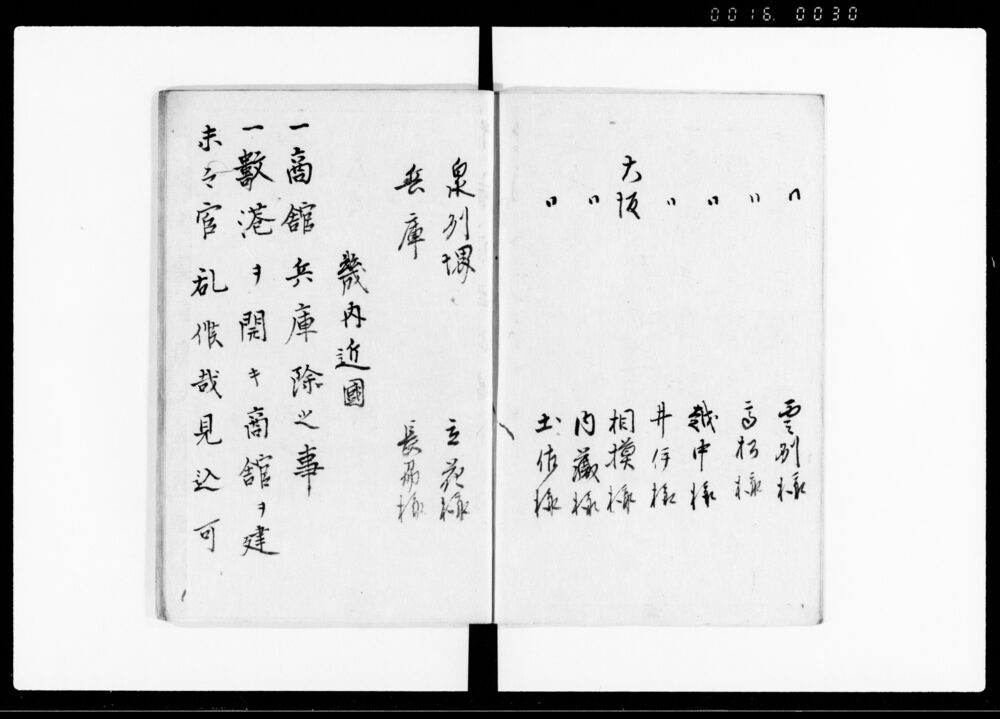 0016. 0030
〃 雲列様
〃 高松様
〃 越中様
〃 井伊様
大阪 相模様
〃 内蔵様
〃 土佐様
泉列堺 立花様
兵庫 長州様
畿内近國
一商舘兵庫除之事
一數港ヲ開キ商舘ヲ建
官乱候哉見込可